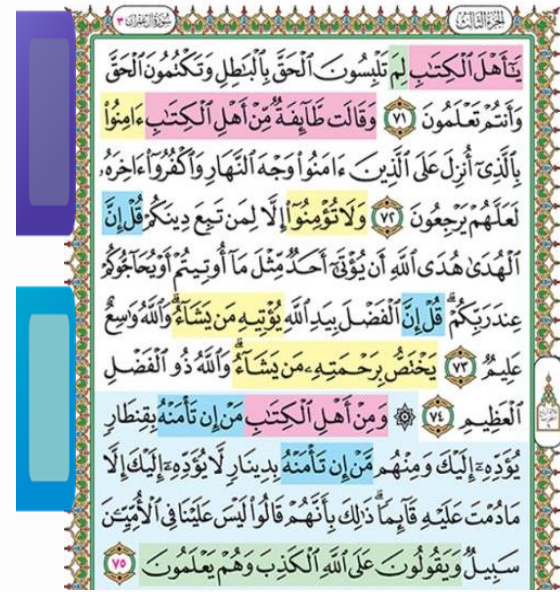 الجزء الثالث
سورة آل عمران ٣
يَٰٓأَهْلَ ٱلْكِتَٰبِ لِمَ تَلْبِسُونَ ٱلْحَقَّ بِٱلْبَٰطِلِ وَتَكْتُمُونَ ٱلْحَقَّ
وَأَنتُمْ تَعْلَمُونَ ٧١ وَقَالَت طَّآئِفَةٌ مِّنْ أَهْلِ ٱلْكِتَٰبِ ءَامِنُوا۟
بِٱلَّذِىٓ أُنزِلَ عَلَى ٱلَّذِينَ ءَامَنُوا۟ وَجْهَ ٱلنَّهَارِ وَٱكْفُرُوٓا۟ ءَاخِرَهُۥ
لَعَلَّهُمْ يَرْجِعُونَ ٧٢ وَلَا تُؤْمِنُوٓا۟ إِلَّا لِمَن تَبِعَ دِينَكُمْ قُلْ إِنَّ
ٱلْهُدَىٰ هُدَى ٱللَّهِ أَن يُؤْتَىٰٓ أَحَدٌ مِّثْلَ مَآ أُوتِيتُمْ أَوْ يُحَآجُّوكُمْ
عِندَ رَبِّكُمْ ۗ قُلْ إِنَّ ٱلْفَضْلَ بِيَدِ ٱللَّهِ يُؤْتِيهِ مَن يَشَآءُ ۗ وَٱللَّهُ وَٰسِعٌ
عَلِيمٌ ٧٣ يَخْتَصُّ بِرَحْمَتِهِۦ مَن يَشَآءُ ۗ وَٱللَّهُ ذُو ٱلْفَضْلِ
ٱلْعَظِيمِ ٧٤ ۞ وَمِنْ أَهْلِ ٱلْكِتَٰبِ مَنْ إِن تَأْمَنْهُ بِقِنطَارٍ
يُؤَدِّهِۦٓ إِلَيْكَ وَمِنْهُم مَّنْ إِن تَأْمَنْهُ بِدِينَارٍ لَّا يُؤَدِّهِۦٓ إِلَيْكَ إِلَّا
مَا دُمْتَ عَلَيْهِ قَآئِمًا ۗ ذَٰلِكَ بِأَنَّهُمْ قَالُوا۟ لَيْسَ عَلَيْنَا فِى ٱلْأُمِّيِّـۧنَ
سَبِيلٌ وَيَقُولُونَ عَلَى ٱللَّهِ ٱلْكَذِبَ وَهُمْ يَعْلَمُونَ ٧٥